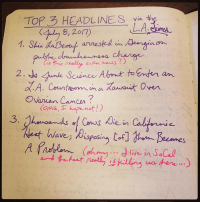 TOP 3 HEADLINES via the
(July 8, 2017) L.A. Times
1. Shia LaBeouf arrested in
public drunkenness charge
(is this really even news?)
2. Is Junk Science About to Enter an
L.A. Courtroom in a Lawsuit Over
Ovarian Cancer?
(Gosh, I hope not!)
3. Thousands of Cows Die in California
Heat Wave; Disposing [of] Them Becomes
A Problem (ohmy... I live in SoCal
and the heat really is killing us here...)